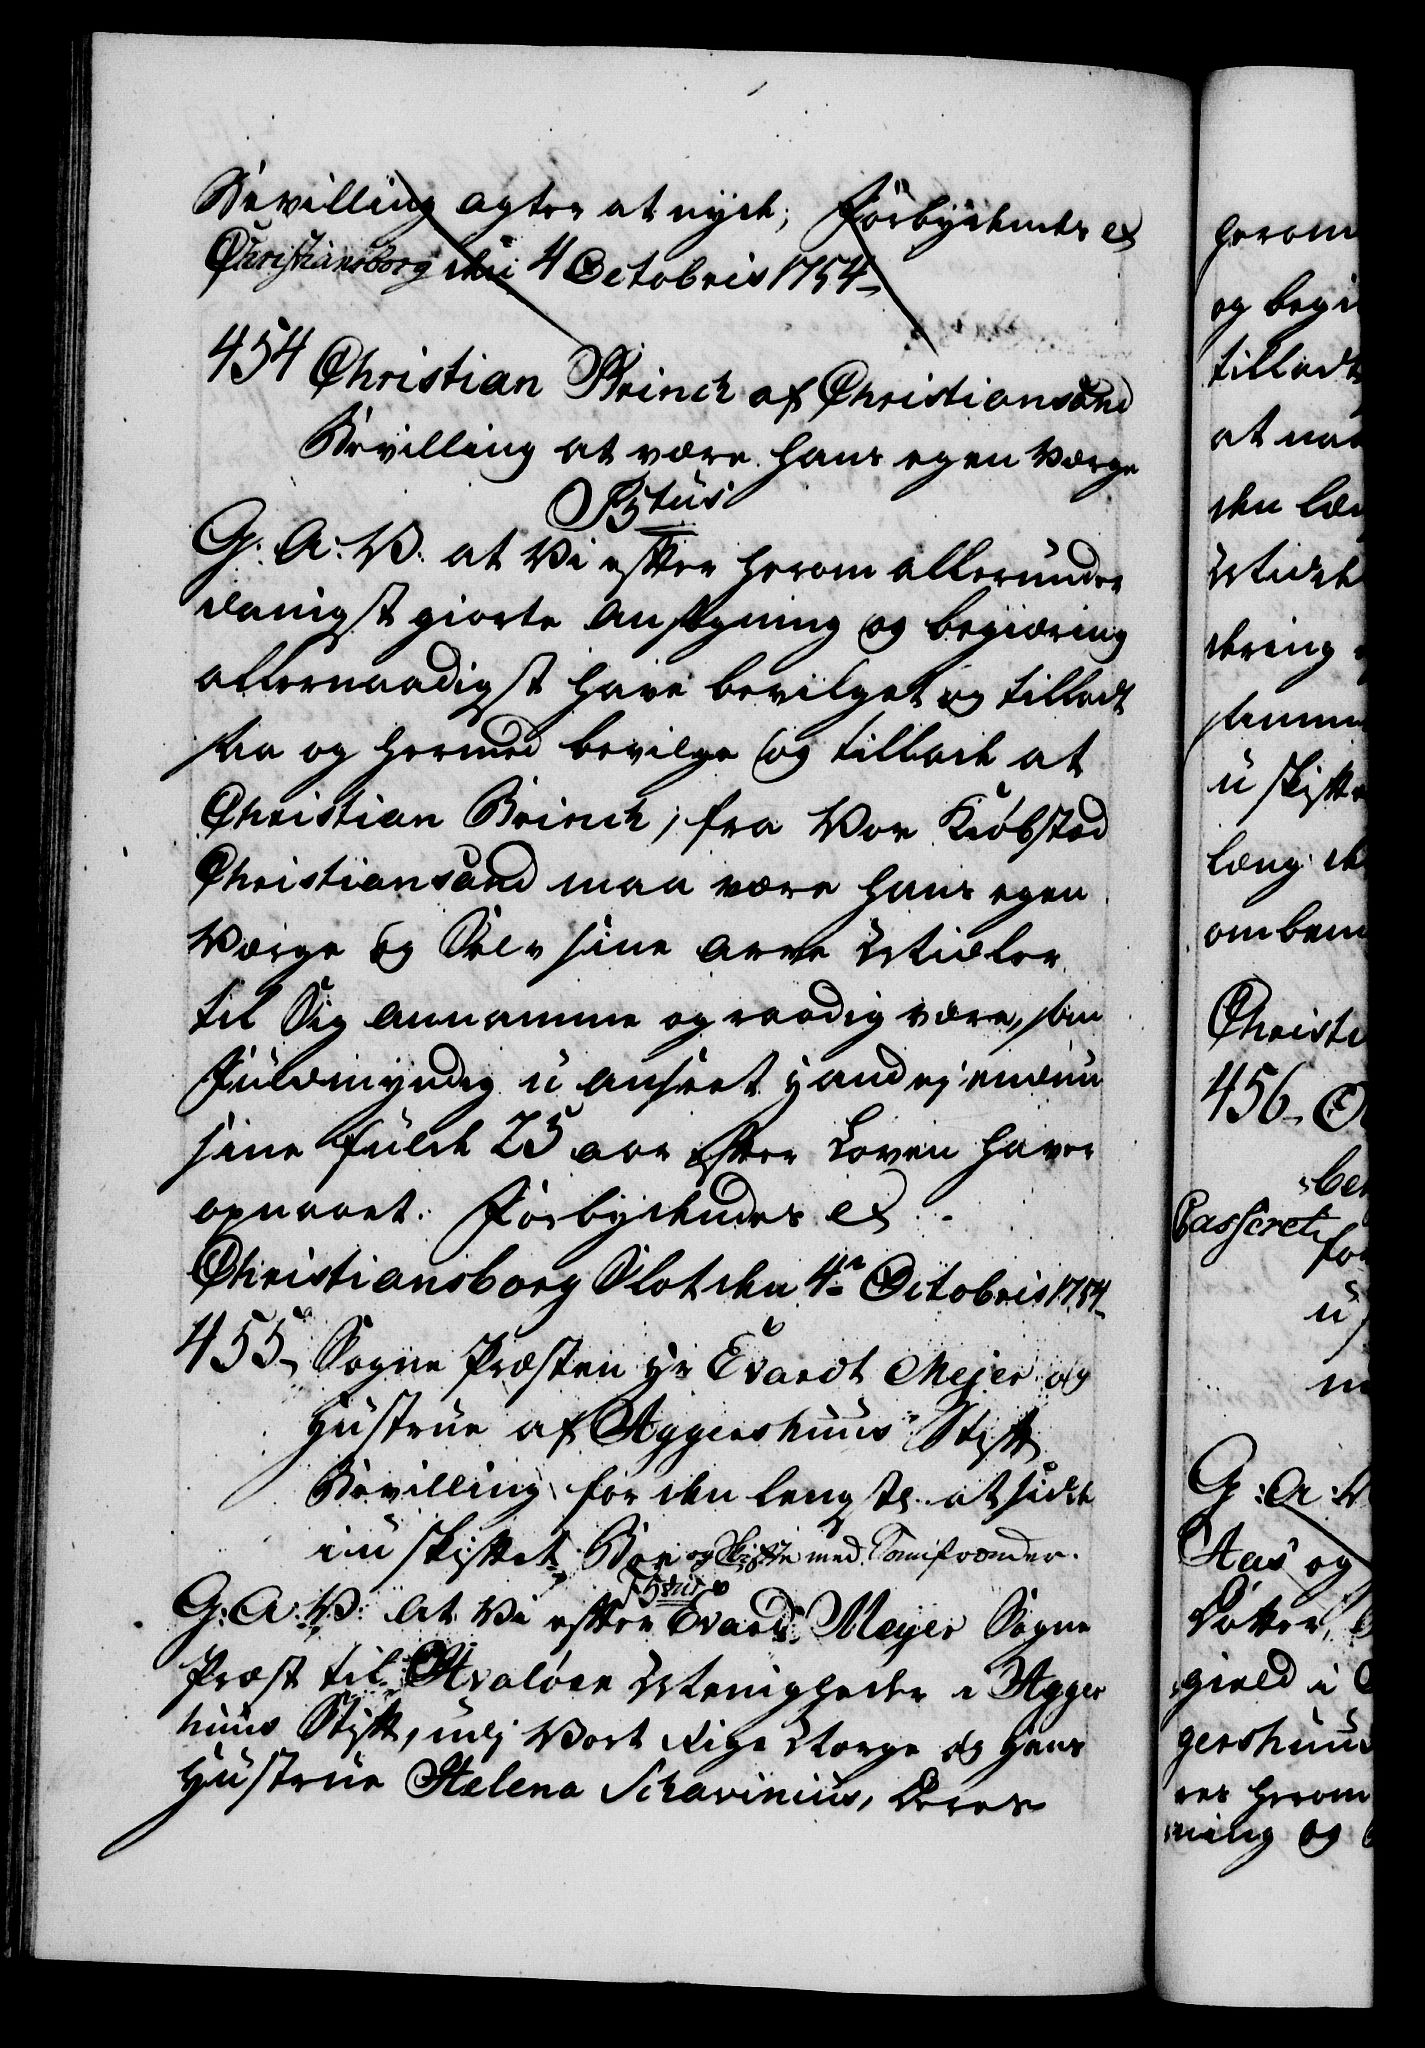 Bevilling agter at nyde, Forbydendes ec
Christiansborg den 4 Octobris 1754
454 Christian Brinch af Christiansand
Bevilling at være hans egen Værge
G: A: V: at Vi efter herom allerunder
danigst giorte Ansøgning og begiæring
allernaadigst have bevilget og tilladt
saa og hermed bevilge og tillade at
Christian Brinch, fra Vor Kiöbsted
Christiansand maa være hans egen
Værge og Selv sine arve Midler
til Sig annamme og raadig være, som
Fuldmyndig u anseet hand ej endnu
sine fulde 25 aar efter Loven haver
opnaaet. Forbydendes ec
Christiansborg Slot den 4de Octobris 1754
455 Sogne Præsten Hr Evardt Mejer og
Hustrue af Aggershuus Stift
Bevilling for den lengstl. at sidde
i u skiftet Boe og Skifte med Samfrænder.
G: A: V: At Vi efter Evard Meyer Sogne
Præst til Hvalöen Meenigheder i Agger
huus Stift, udj Vort Rige Norge og hans
Hustrue Helena Schavinius, Deres
herom
og begi
tillad
at naa
den læn
Midde
dring
samm
u skifte
læng de
ombem
Christi
456
ber
Passeret
for
u
G: A: V
Aas og
Dotter,
gield i
gershuus
res herom
ning og